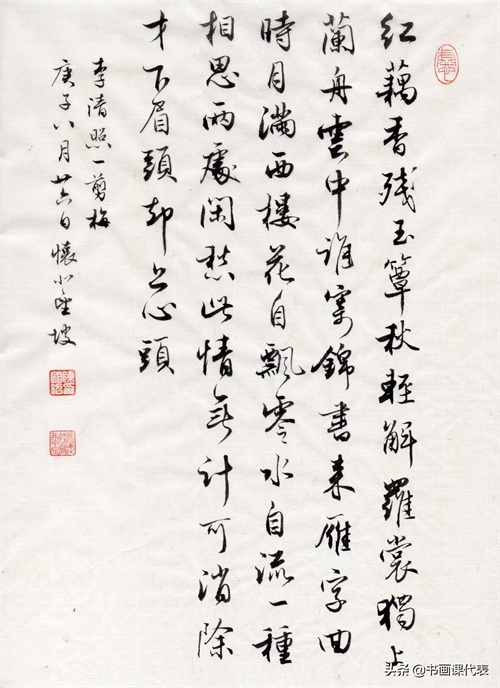 红藕香残玉簟秋輕解羅裳獨上
蘭舟雲中谁寄錦書来雁字回
時月滿西樓花自飄零水自流一種
相思兩處闲愁此情無計可消除
才下眉頭却上心頭
李清照一剪梅
庚子八月廿六日懷坡
头条 @书画课代表